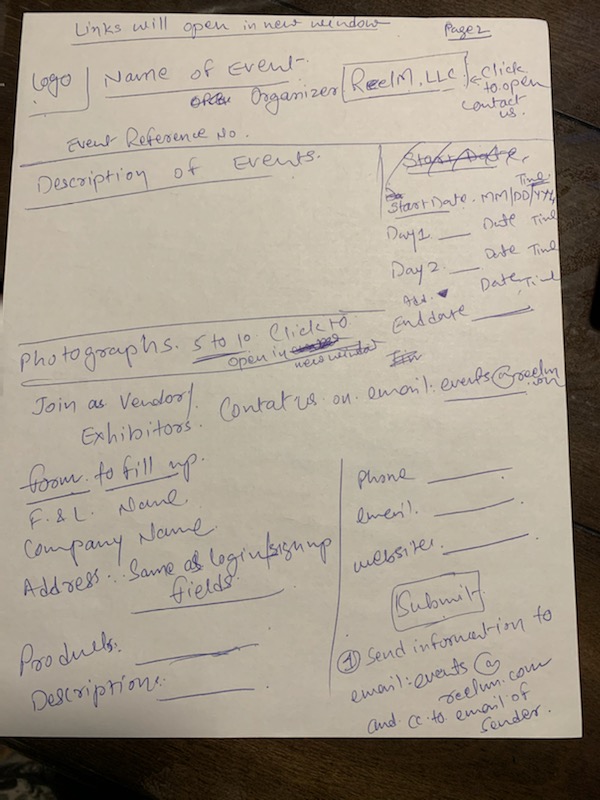 Links will open in new window
Page 2
Logo
Name of Event.
Organizer ReelM. LLC.
← Click to open contact us.
Event Reference No.
Description of Events.
Start Date,
Time
Start Date. MM/DD/YYYY
Day 1 ___ Date Time
Day 2. ___ Date Time
Add. ▼ Date Time
End date ___
Photographs. 5 to 10. Click to
open in new window
Join as Vendor/
Exhibitors.
Contat us on email: events@reelm.com
form to fill up.
F. & L. Name
Company Name
Address. Same as login/signup
fields.
Products. ___
Description: ___
Phone ___
email. ___
website. ___
Submit
① Send information to
email: events@
reelm.com
and cc to email of
Sender.